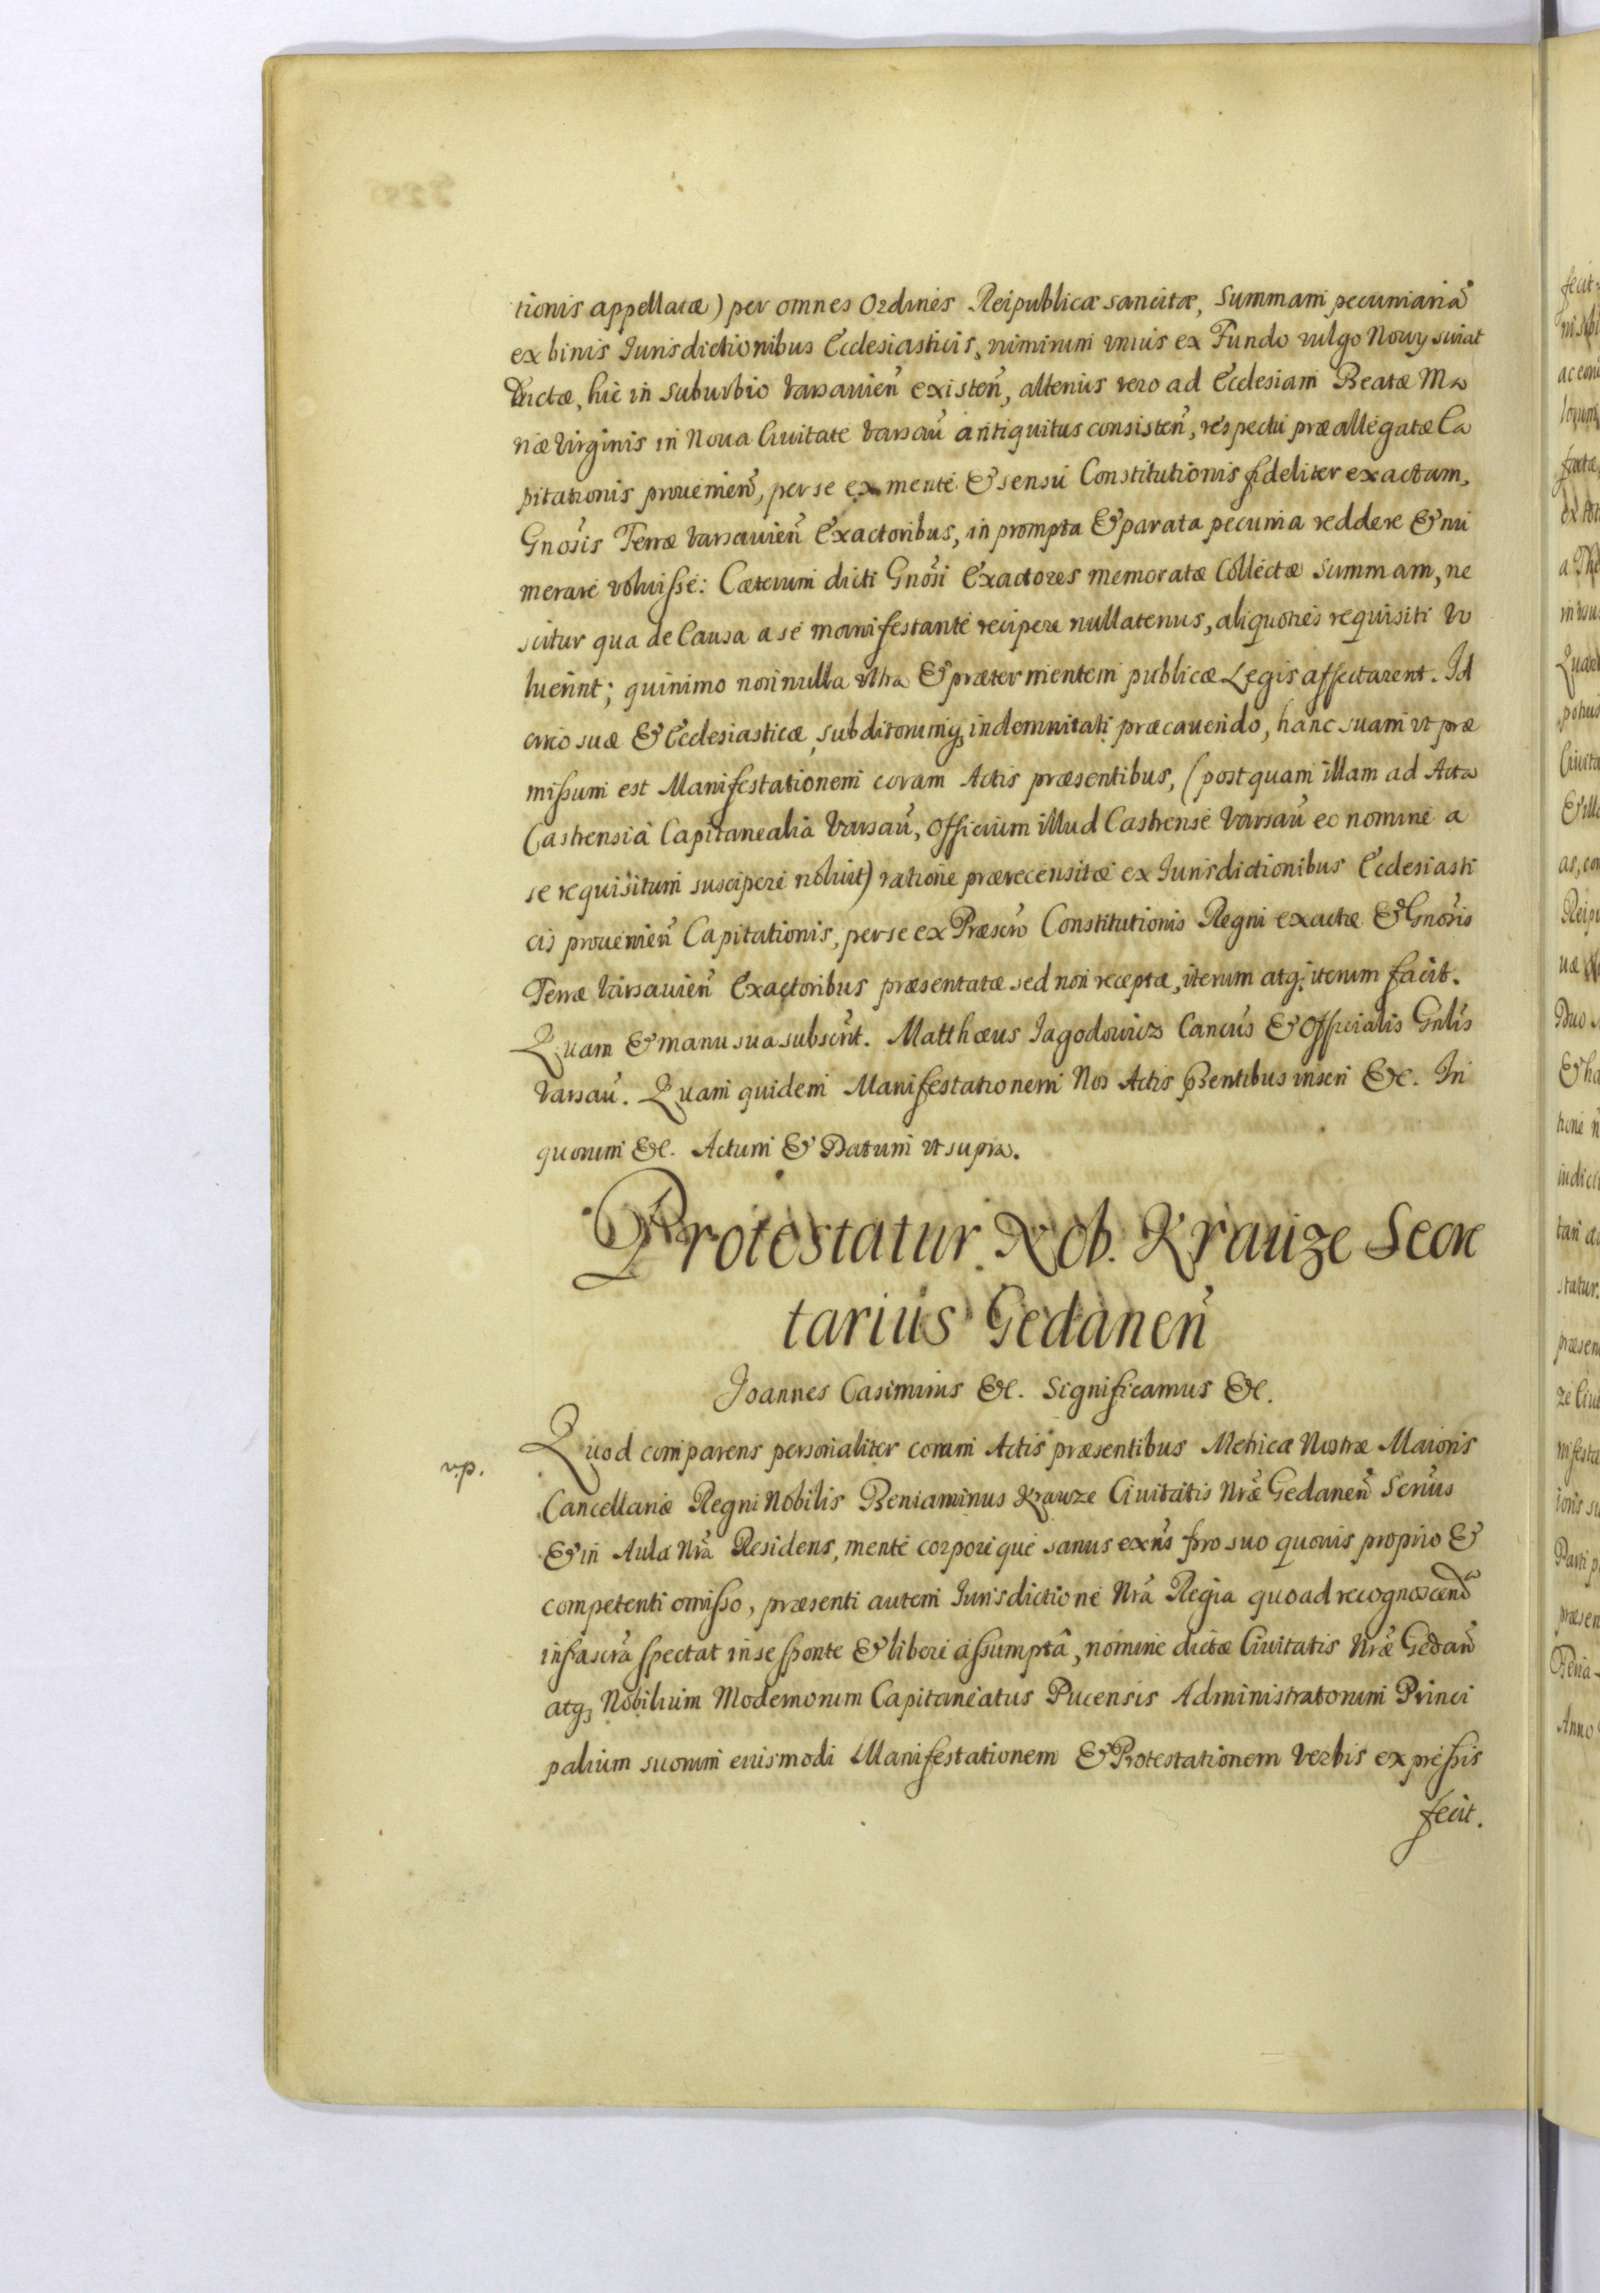 tionis appellatæ) per omnes Ordines Reipublicæ sancitæ, Summam pecuniariā
ex binis Iurisdictionibus Ecclesiasticis, nimirum unius ex Fundo vulgo Nowy swiat
Dictæ, hic in Suburbio Varsavień existeń, alterius vero ad Ecclesiam Beatæ Ma
riæ Virginis in Noua Ciuitate Varsaū antiquitus consisteń, respectu præallegatæ Ca
pitationis prouenień, per se ex mente & sensu Constitutionis fideliter exactam,
Gnosis Terræ Varsauień Exactoribus, in prompta & parata pecunia reddere & nu
merare voluisse: Cæterum dicti Gnosi Exactores memoratæ Collectæ Summam, ne
scitur qua de Causa a se manifestante recipere nullatenus, aliquoties requisiti vo
luerint; quinimo nonnulla ultra & præter mentem publicæ Legis affectarent. Id
circo suæ & Ecclesiasticæ, subditorumq; indemnitati præcauendo, hanc suam ut præ
missum est Manifestationem coram Actis præsentibus, (postquam illam ad Acta
Castrensia Capitanealia Varsaū, Officium illud Castrense Varsaū eo nomine a
se requisitum suscipere noluit) ratione prærecensitæ ex Iurisdictionibus Ecclesiasti
cis prouenień Capitationis, per se ex Præscro Constitutionis Regni exactæ & Gnosis
Terræ Varsauień Exactoribus præsentatæ sed non receptæ, iterum atq; iterum facit.
Quam & manu sua subscrit. Matthæus Jagodowicz Cancus & Officialis Gnlis
Varsaū. Quam quidem Manifestationem Nos Actis pręntibus inseri &c. In
quorum &c. Actum & Datum ut supra.
Protestatur Nob. Krauze Secre
tarius Gedaneń
Joannes Casimirus &c. Significamus &c.
Quod comparens personaliter coram Actis præsentibus Metricæ Nostræ Maioris
v.p.
Cancellariæ Regni Nobilis Beniaminus Krauze Ciuitatis Nræ Gedaneń Scrius
& in Aula Nra Residens, mente corporique sanus exns fro suo quovis proprio &
competenti omisso, præsenti autem Iurisdictione Nra Regia quoad recognoscend
infrascra spectat in se sponte & libere assumptâ, nomine dictæ Ciuitatis Nræ Gedań
atq; Nobilium Modernorum Capitaneatus Pucensis Administratorum Princi
palium suorum eiusmodi Manifestationem & Protestationem Verbis expressis
fecit.